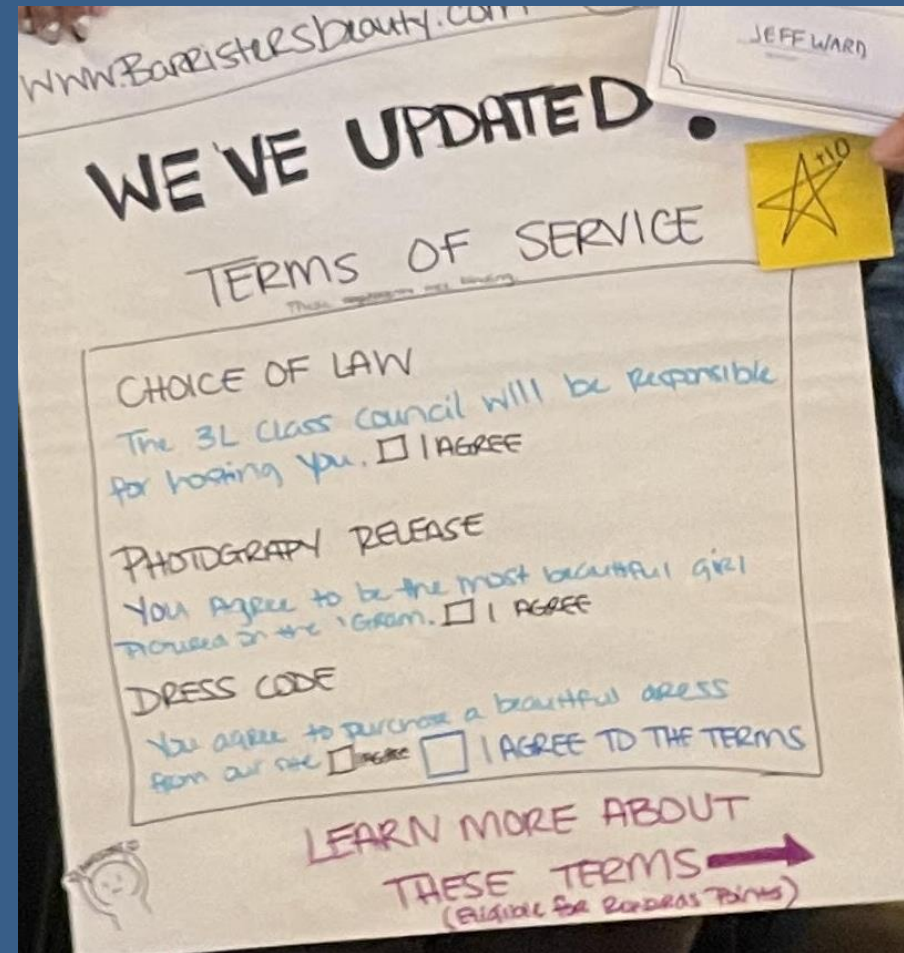 www.BarristersBeauty.com
JEFF WARD
WE'VE UPDATED!
+10
TERMS OF SERVICE
These are binding
CHOICE OF LAW
The 3L Class Council will be Responsible
for hosting you. I AGREE
PHOTOGRAPY RELEASE
You Agree to be the most beautiful girl
Pictured on the 'Gram. I AGREE
DRESS CODE
You agree to purchase a beautiful dress
from our site I AGREE I AGREE TO THE TERMS
LEARN MORE ABOUT
THESE TERMS
(Eligible for Points)